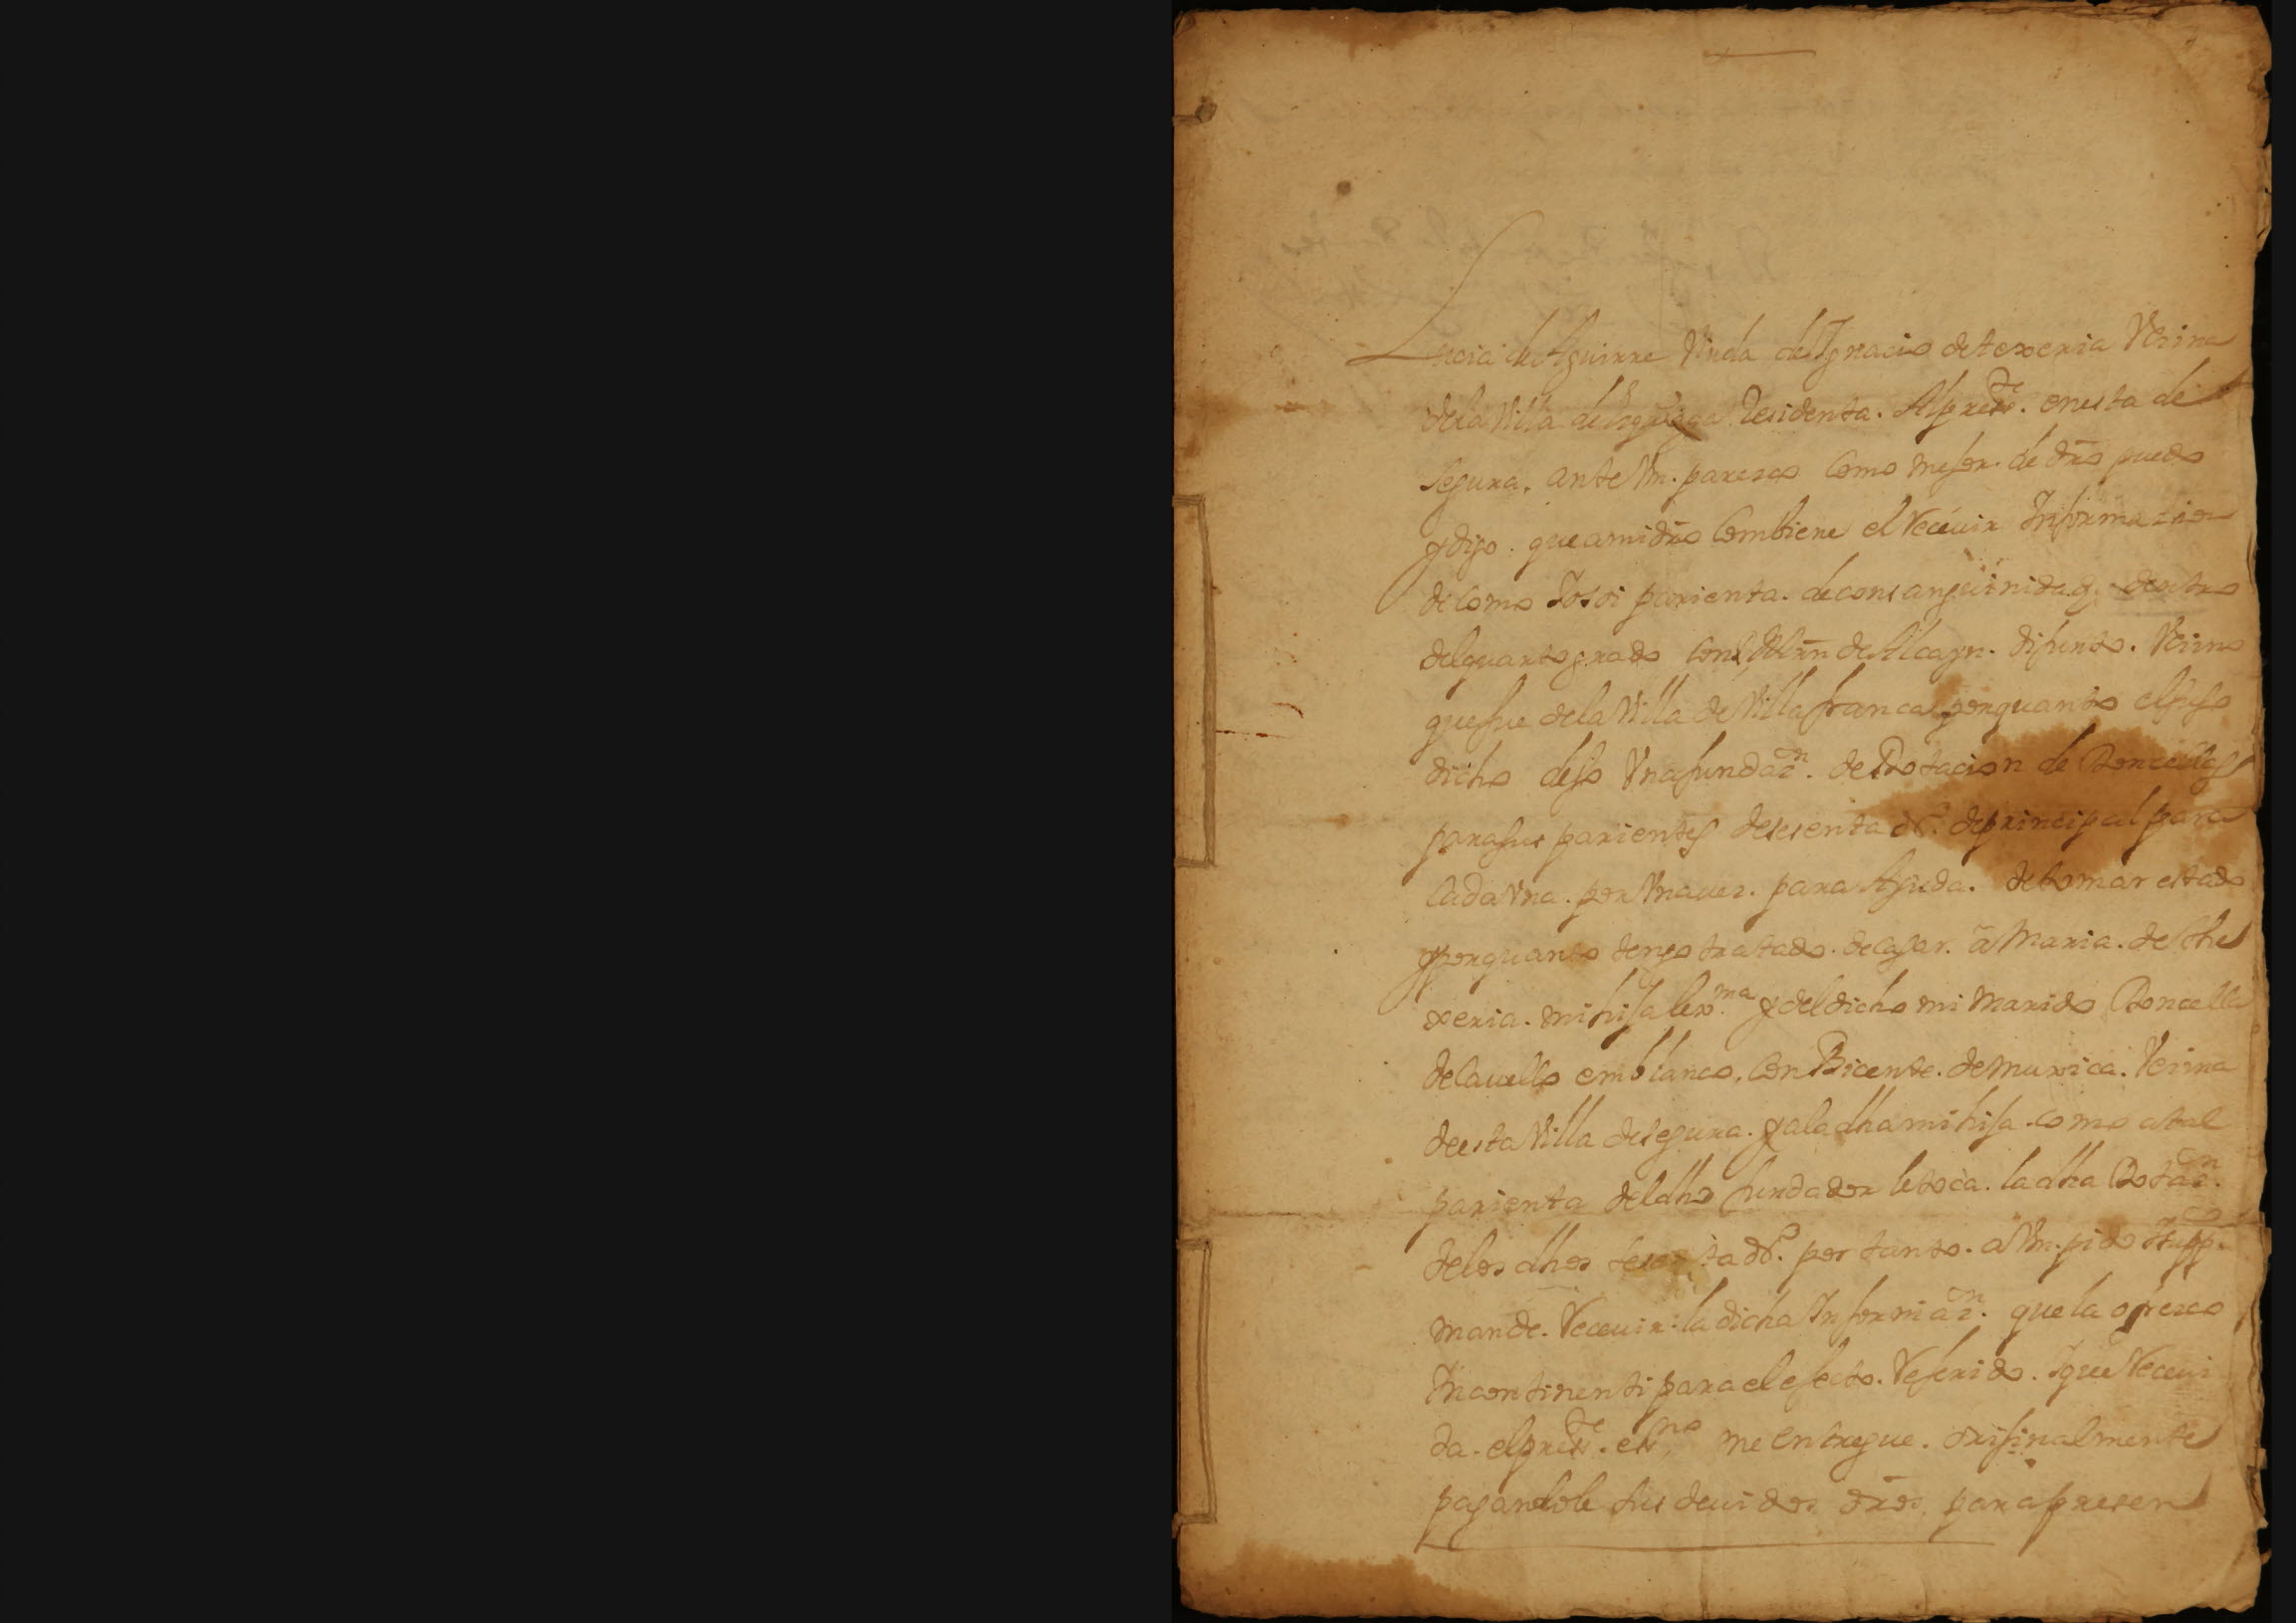 Lucia de Aguirre Viuda de Ygnacio de texeria Vecina
de la Villa de Residenta. Al preste. en esta de
Segura. ante Vm. paresco Como mejor. de dro puedo
y digo. que a mi dro Combiene el Recevir Informazion
de Como Yo soi parienta. de consanguinidad. dentro
del quarto grado Con de Alcayn. difunto. Vecino
que fue de la Villa de Villafranca porquanto el suso
dicho dejo Una fundazn. de Dotacion de Doncellas
para sus parientes de sesenta ds. de principal para
Cada Una. por Una vez. para Ayuda. de tomar estado
y porquanto tengo tratado. de casar. a Maria. de the
xeria. mi hija lexma. y del dicho mi Marido Doncella
de Cavello em blanco. Con Bicente. de Muxica. Vecino
de esta Villa de Segura. y a la dha mi hija. como a tal
parienta del dho fundador le toca. la dha Dotazn.
de los dhos sesenta ds. por tanto. a Vm. pido y suppco.
mande. Recevir. la dicha Informazn. que la ofresco
Incontinenti para el efecto. Referido. Y que Recevi
da. el preste. essno me entregue. orijinalmente
pagandole sus devidos dros. para presen